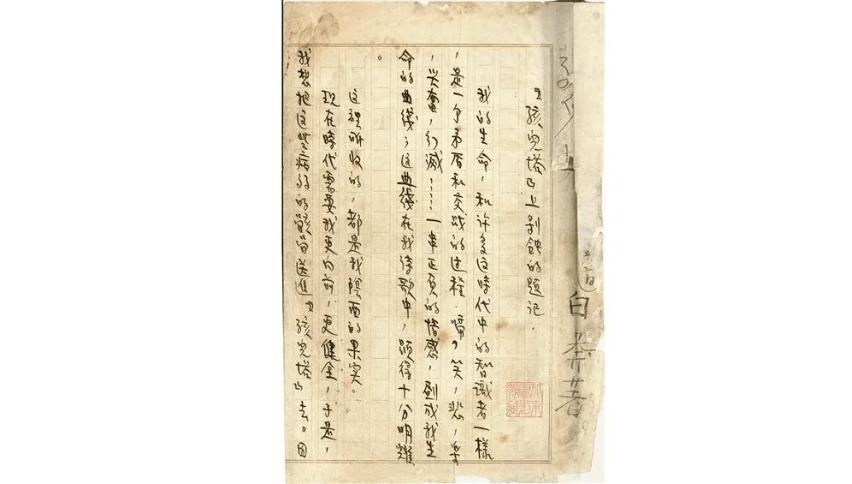 白莽著
『孩兒塔』上剝蝕的題记.
我的生命，和许多这時代中的智識者一樣
，是一个矛盾和交战的过程，啼，笑，悲，樂
，兴奮，幻滅……一串正負的情感，劃成我生
命的曲线；这曲线在我诗歌中，顕得十分明耀
。
这裡所收的，都是我陰面的果实。
現在時代需要我更向前，更健全，于是，
我想把这些病弱的骸骨送進『孩兒塔』去。因